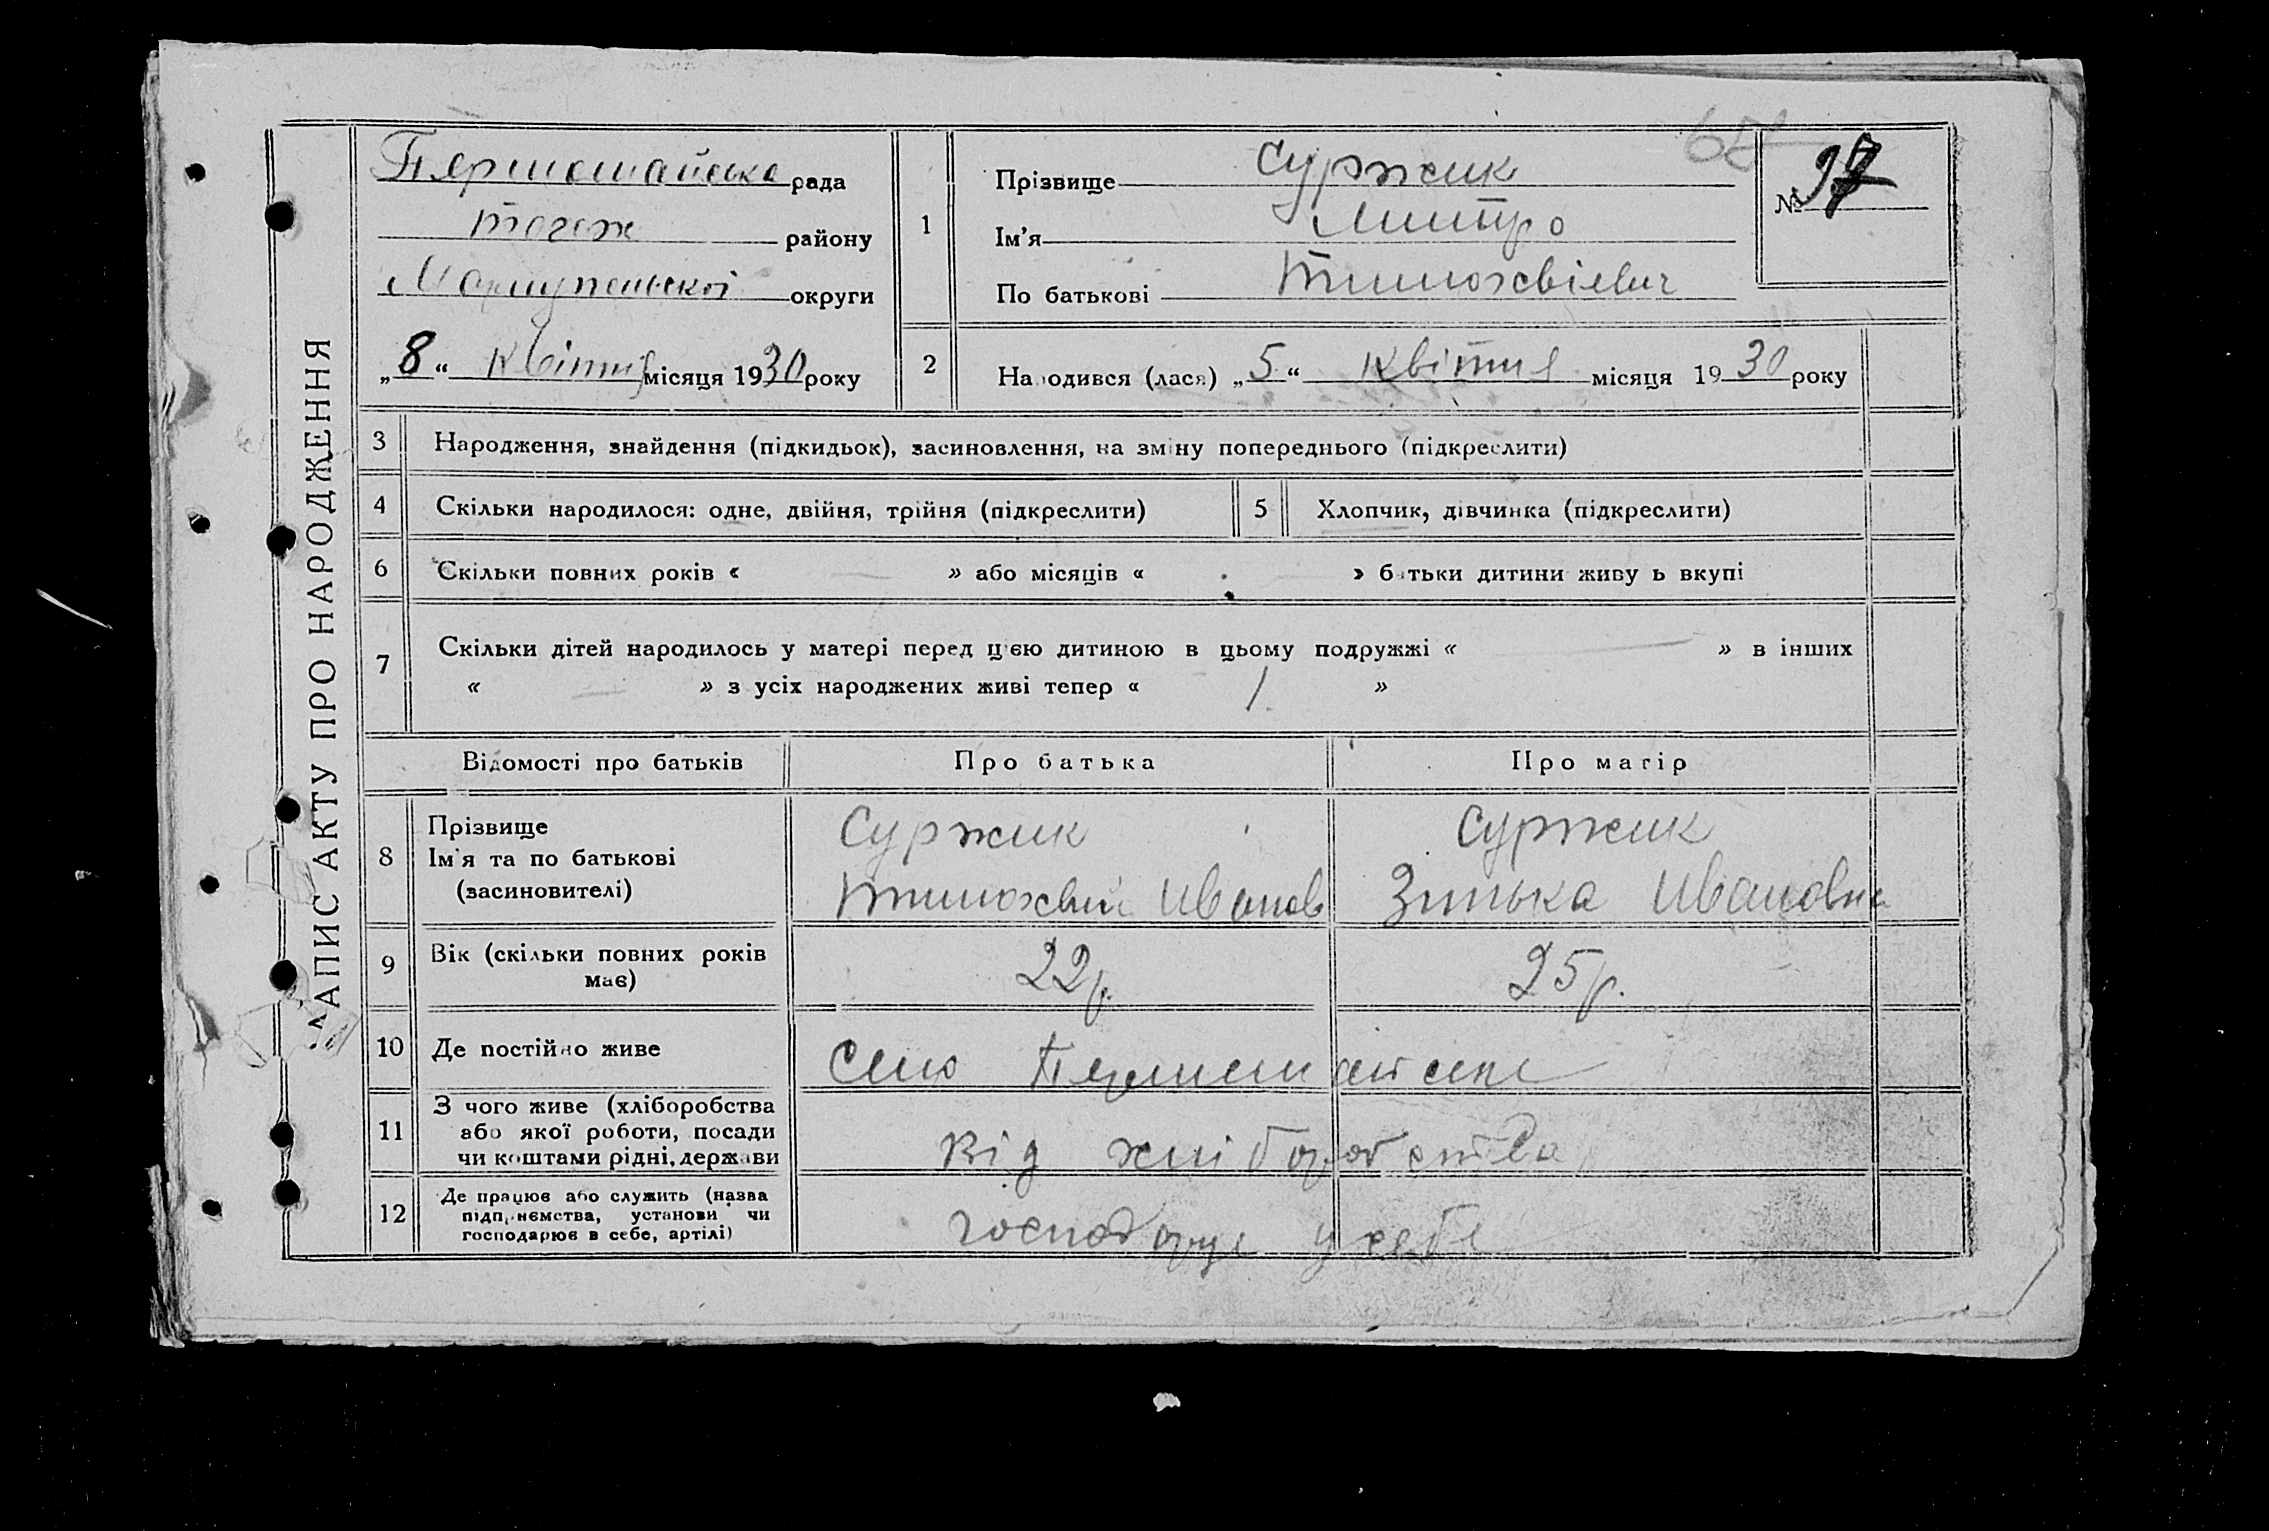 ЗАПИС АКТУ ПРО НАРОДЖЕННЯ
Першомайська рада
тогож району
Маріупельскої округи
„8“ квітня місяця 1930 року
1
Прізвище Суржик
Ім’я Митро
По батькові Тимохвієвич
№ 97
2
Народився (лася) „5“ квітня місяця 1930 року
3 Народження, знайдення (підкидьок), засиновлення, на зміну попереднього (підкреслити)
4 Скільки народилося: одне, двійня, трійня (підкреслити)
5 Хлопчик, дівчинка (підкреслити)
6 Скільки повних років « — » або місяців « — » батьки дитини живуть вкупі
7 Скільки дітей народилось у матері перед цією дитиною в цьому подружжі « — » в інших
« — » з усіх народжених живі тепер « 1 »
Відомості про батьків
Про батька
Про матір
8 Прізвище
Ім’я та по батькові
(засиновителі)
Суржик
Тимохвій Иванов
Суржик
Зинька Ивановна
9 Вік (скільки повних років
має)
22 р.
25 р.
10 Де постійно живе
Село Першемайське
11 З чого живе (хліборобства
або якої роботи, посади
чи коштами рідні, держави
Від хліборобства
12 Де працює або служить (назва
підприємства, установи чи
господарює в себе, артілі)
господарує у себе